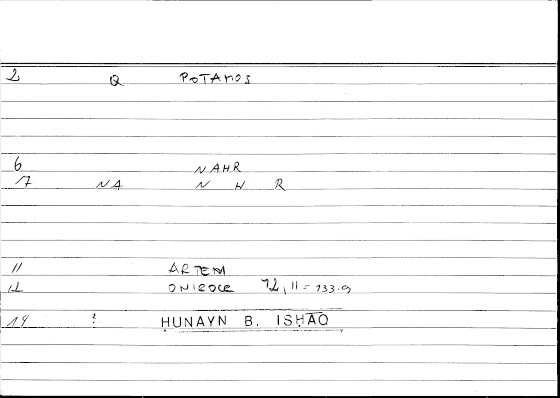 2 Q POTAMOS
6 NAHR
17 NA N H R
11 ARTEM
12 ONIROCR 72,11 = 133.9
14 ? ḤUNAYN B. ISḤĀQ